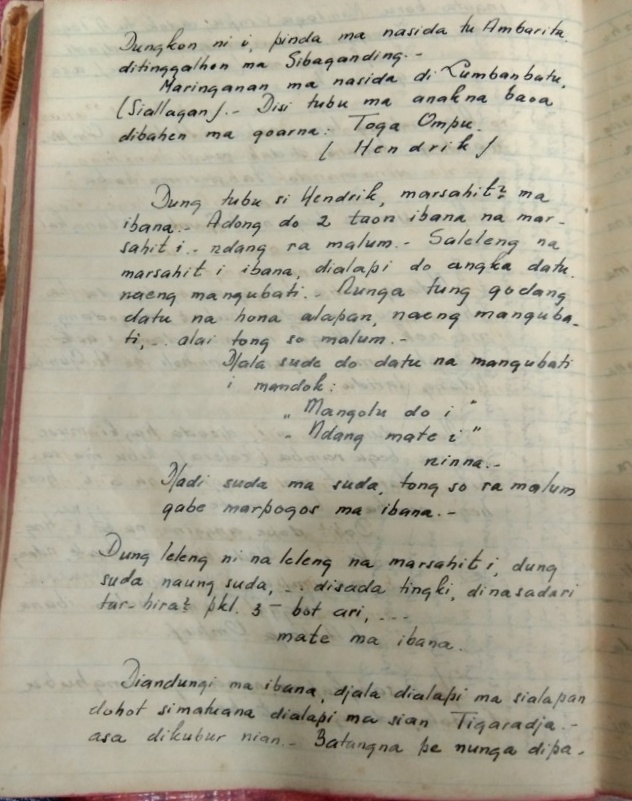 Dungkon ni i, pinda ma nasida tu Ambarita.
ditinggalhon ma Sibaganding.-
Maringanan ma nasida di Lumbanbatu,
(Siallagan).- Disi tubu ma anakna baoa
dibahen ma goarna: Toga Ompu.
( Hendrik )
Dung tubu si Hendrik, marsahit2 ma
ibana.- Adong do 2 taon ibana na mar-
sahit i.- ndang ra malum.- Saleleng na
marsahit i ibana, dialapi do angka datu.
naeng mangubati.- Nunga tung godang
datu na hona alapan, naeng manguba-
ti,.- alai tong so malum.-
Djala sude do datu na mangubati
i mandok:
„ Mangolu do i "
„ Ndang mate i "
ninna.-
Djadi suda ma suda, tong so ra malum
gabe marpogos ma ibana.-
Dung leleng ni na leleng na marsahit i, dung
suda naung suda, .. disada tingki, dinasadari
tar-hira2 pkl. 3 - bot ari, ...
mate ma ibana.
Diandungi ma ibana, djala dialapi ma sialapan
dohot simatuana dialapi ma sian Tigaradja.-
asa dikubur nian.- Batangna pe nunga dipa-